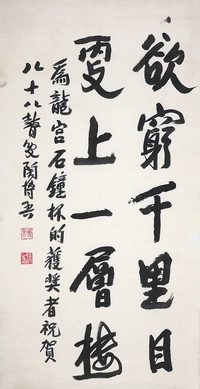 欲窮千里目
更上一層樓
爲龍宮石鐘杯的獲獎者祝賀
八十八瞽叟陶博吾